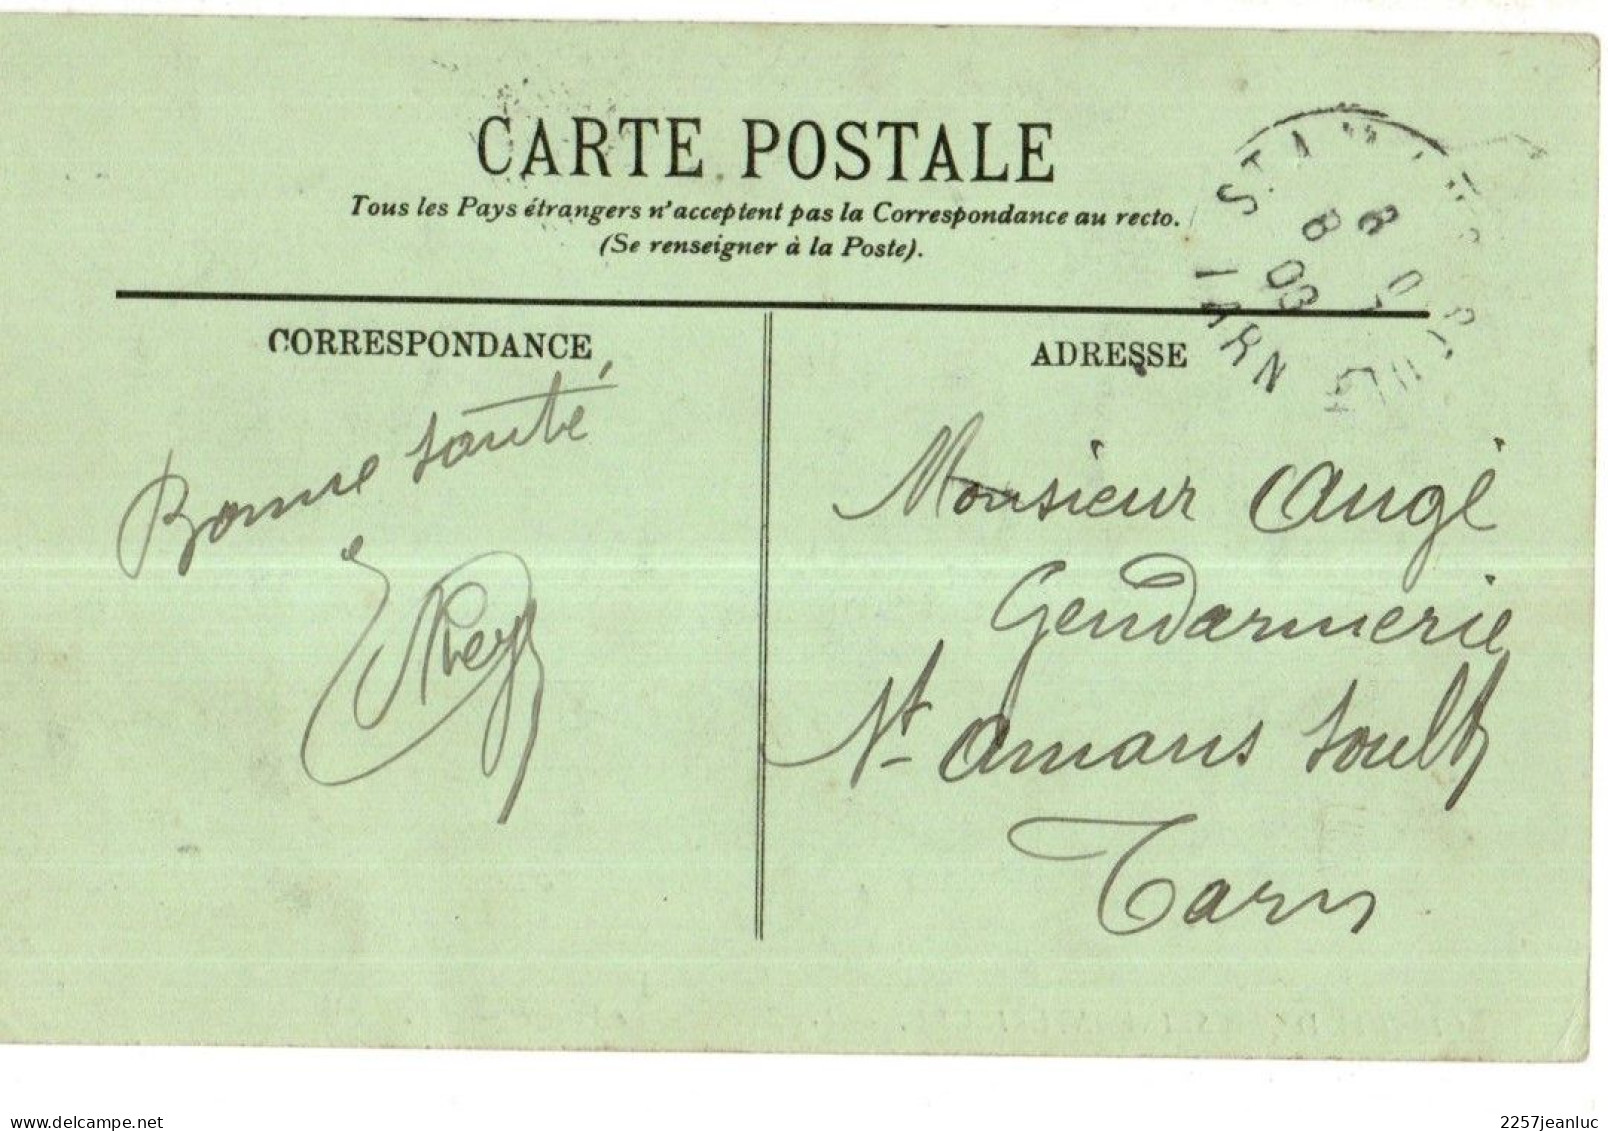 CARTE POSTALE
Tous les Pays étrangers n'acceptent pas la Correspondance au recto.
(Se renseigner à la Poste).
CORRESPONDANCE
Bonne santé
ADRESSE
Monsieur Augé
Gendarmerie
St Amans Soult
Tarn
TARN
delcampe.net
2257jeanluc